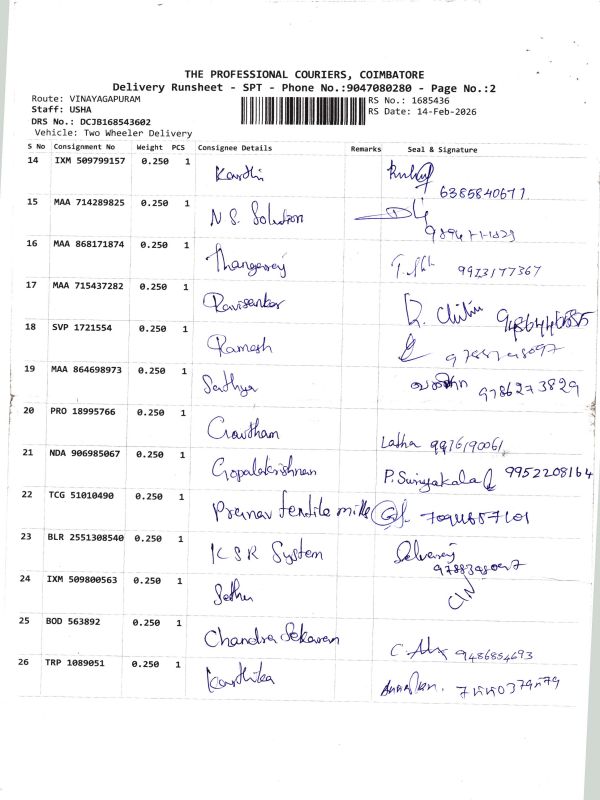 THE PROFESSIONAL COURIERS, COIMBATORE
Delivery Runsheet - SPT - Phone No.:9047080280 - Page No.:2
Route: VINAYAGAPURAM
Staff: USHA
DRS No.: DCJB168543602
Vehicle: Two Wheeler Delivery
RS No.: 1685436
RS Date: 14-Feb-2026
S No Consignment No Weight PCS Consignee Details Remarks Seal & Signature
14 IXM 509799157 0.250 1 Karthi 6385840671
15 MAA 714289825 0.250 1 N S. Solution
16 MAA 868171874 0.250 1 Thangaraj 9923177367
17 MAA 715437282 0.250 1 Ravisankar
18 SVP 1721554 0.250 1 Ramesh
19 MAA 864698973 0.250 1 Sathya 9786273829
20 PRO 18995766 0.250 1 Gowtham Latha
21 NDA 906985067 0.250 1 Gopalakrishnan P. Suriyakala 9952208164
22 TCG 51010490 0.250 1 Pranav textile mills
23 BLR 2551308540 0.250 1 K S R System Selvaraj
24 IXM 509800563 0.250 1 Sethu
25 BOD 563892 0.250 1 Chandra Sekaran 9486854693
26 TRP 1089051 0.250 1 Karthika